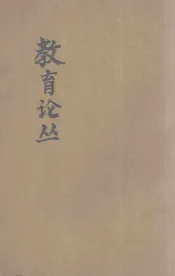 教育论丛